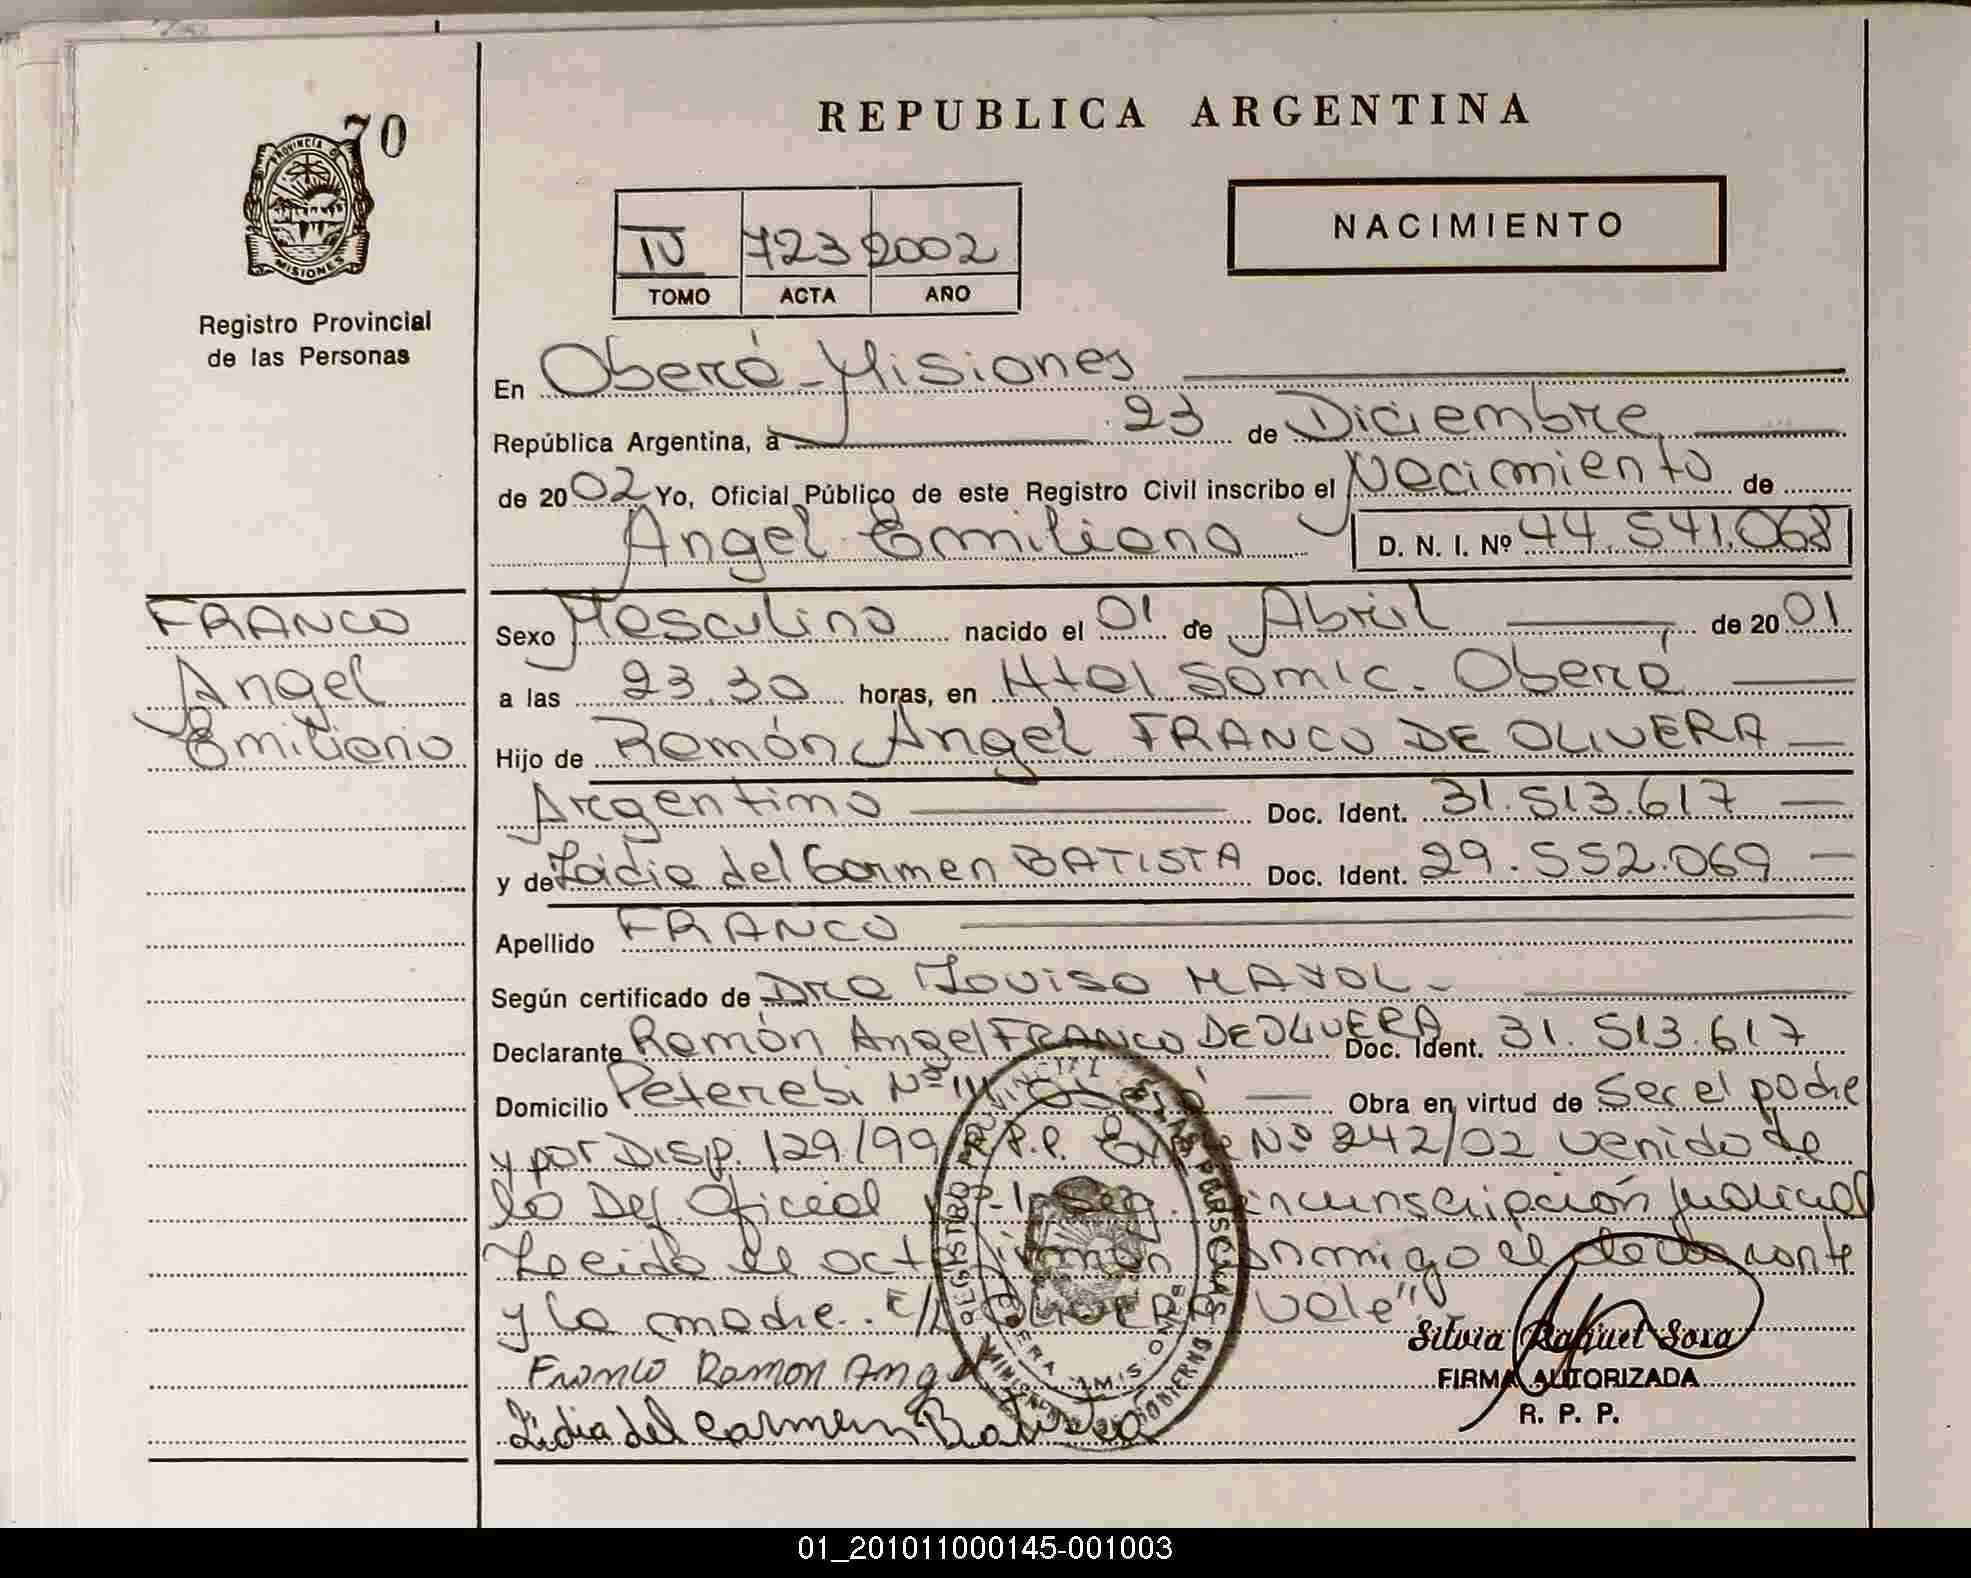 70
PROVINCIA DE
MISIONES
Registro Provincial
de las Personas
REPUBLICA ARGENTINA
IV 723 2002
TOMO ACTA AÑO
NACIMIENTO
En Oberá-Misiones
República Argentina, a 23 de Diciembre
de 2002 Yo, Oficial Público de este Registro Civil inscribo el Nacimiento de
Angel Emiliano D. N. I. Nº 44.541.068
FRANCO
Angel
Emiliano
Sexo Masculino nacido el 01 de Abril de 2001
a las 23.30 horas, en Htal SAMIC. Oberá
Hijo de Ramón Angel FRANCO DE OLIVERA
Argentino Doc. Ident. 31.513.617
y de Lidia del Carmen BATISTA Doc. Ident. 29.552.069
Apellido FRANCO
Según certificado de Dra Louisa MAYOL -
Declarante Ramón Angel FRANCO DE OLIVERA Doc. Ident. 31.513.617
Domicilio Peterebi Nº Obra en virtud de ser el padre
y por Disp. 129/99 R.P.P. Nº 242/02 venido de
la Def. Oficial circunscripción Judicial
Leida el acta firman conmigo el declarante
y la madre. OLIVERA Vale"
Franco Ramon Angel
Lidia del Carmen Batista
REGISTRO PROVINCIAL DE LAS PERSONAS
OBERA MISIONES
MINISTERIO DE GOBIERNO
Silvia Raquel Sosa
FIRMA AUTORIZADA
R. P. P.
01_201011000145-001003